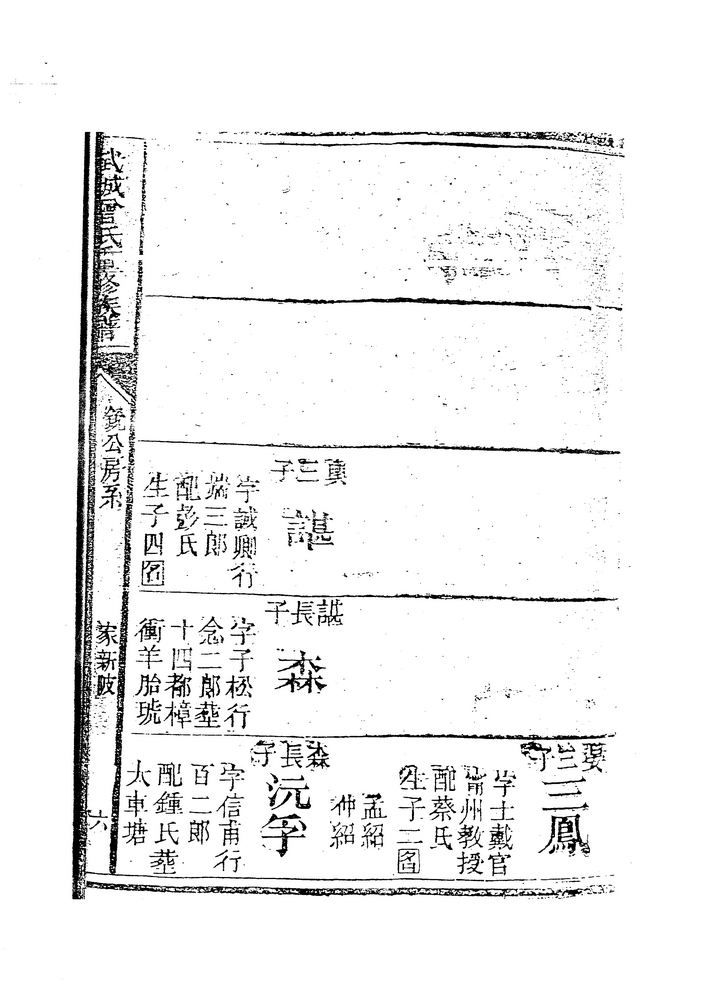 武城曾氏重修族譜
公房系
家新陂
六
三子
諶
字誠卿行
端三郎
配彭氏
生子四名
諶長子
森
字子松行
念二郎葬
十四都樟
衝羊胎琥
三子
三鳳
字士戴官
州教授
配蔡氏
生子二名
孟紹
仲紹
森長子
沅孚
字信甫行
百二郎
配鍾氏葬
大車塘